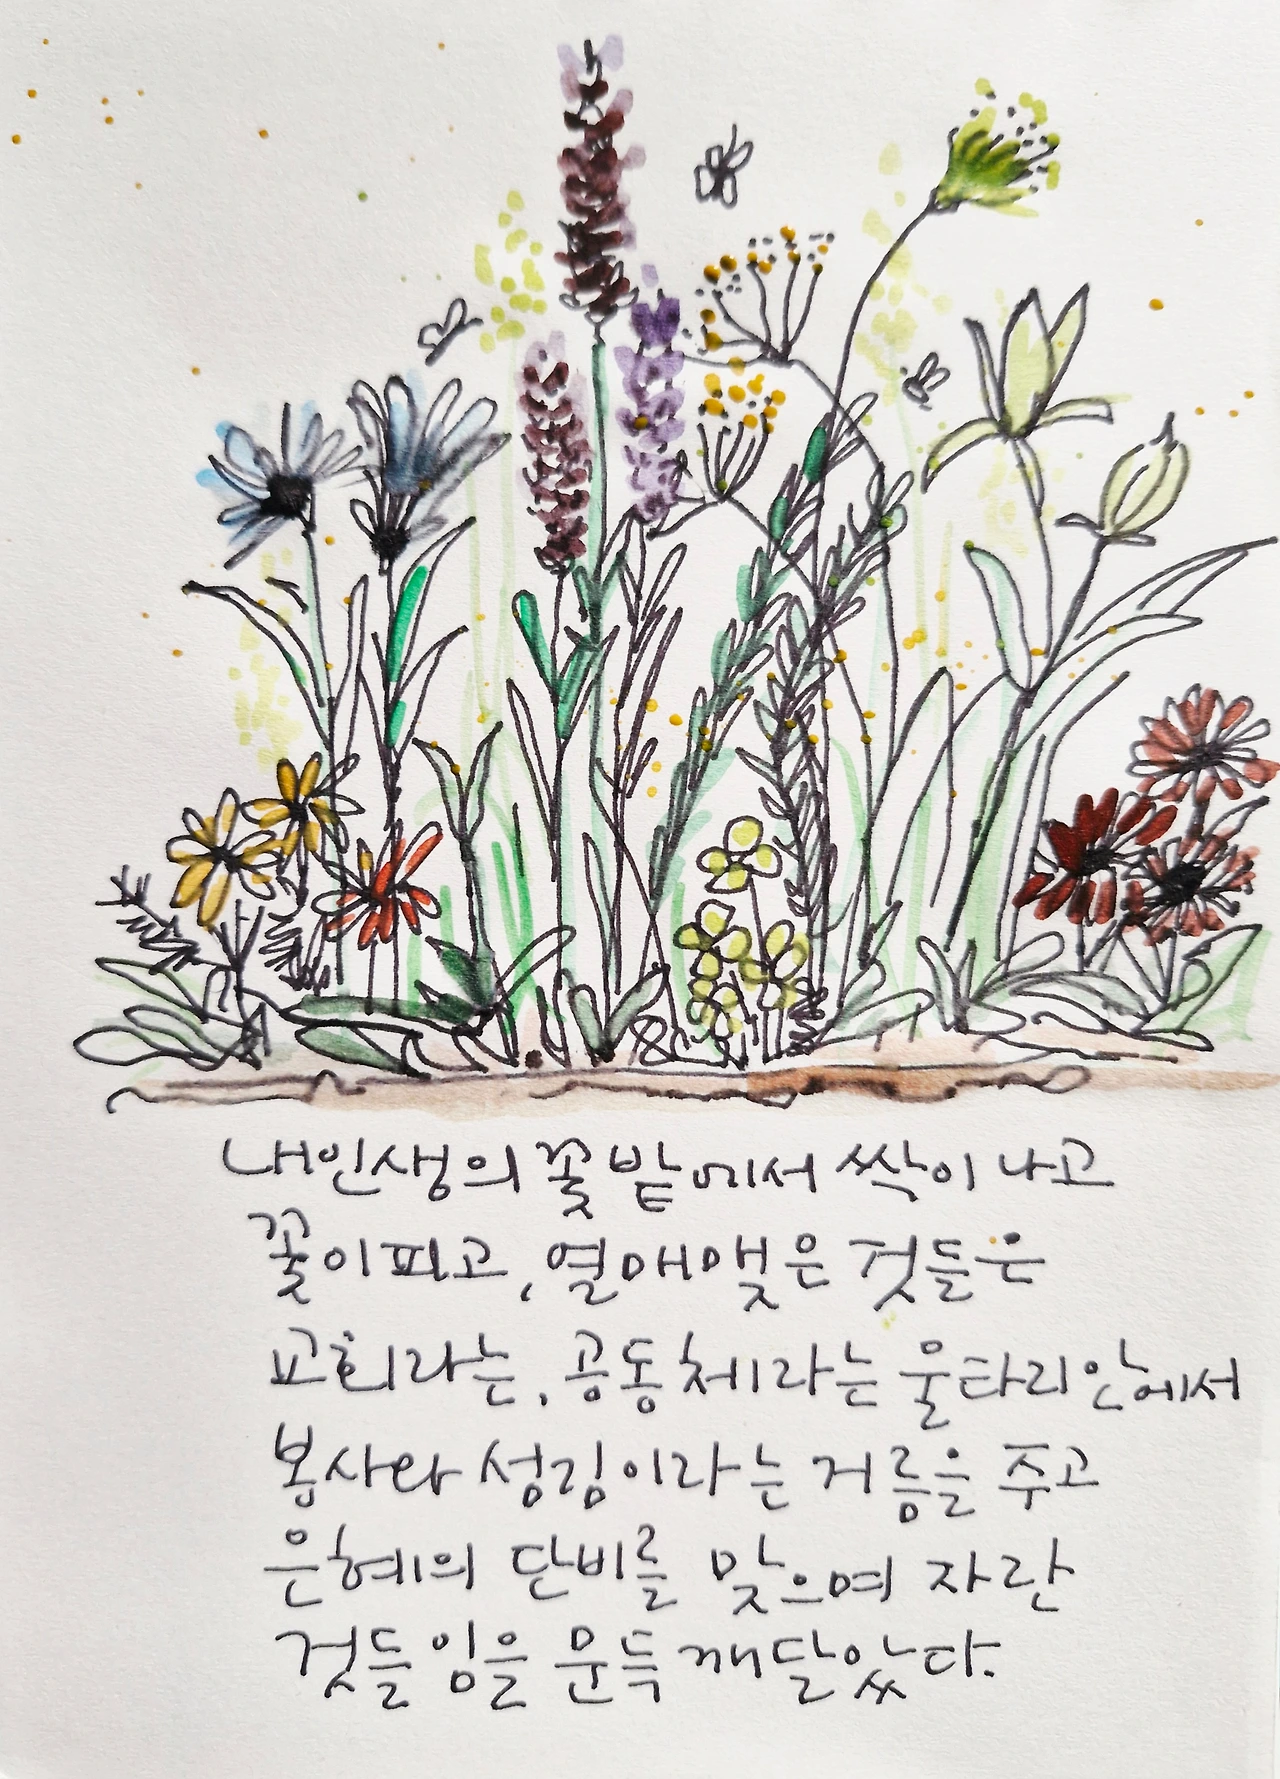 내 인생의 꽃밭에서 싹이 나고
꽃이 피고, 열매 맺은 것들은
교회라는, 공동체라는 울타리 안에서
봉사와 섬김이라는 거름을 주고
은혜의 단비를 맞으며 자란
것들임을 문득 깨달았다.